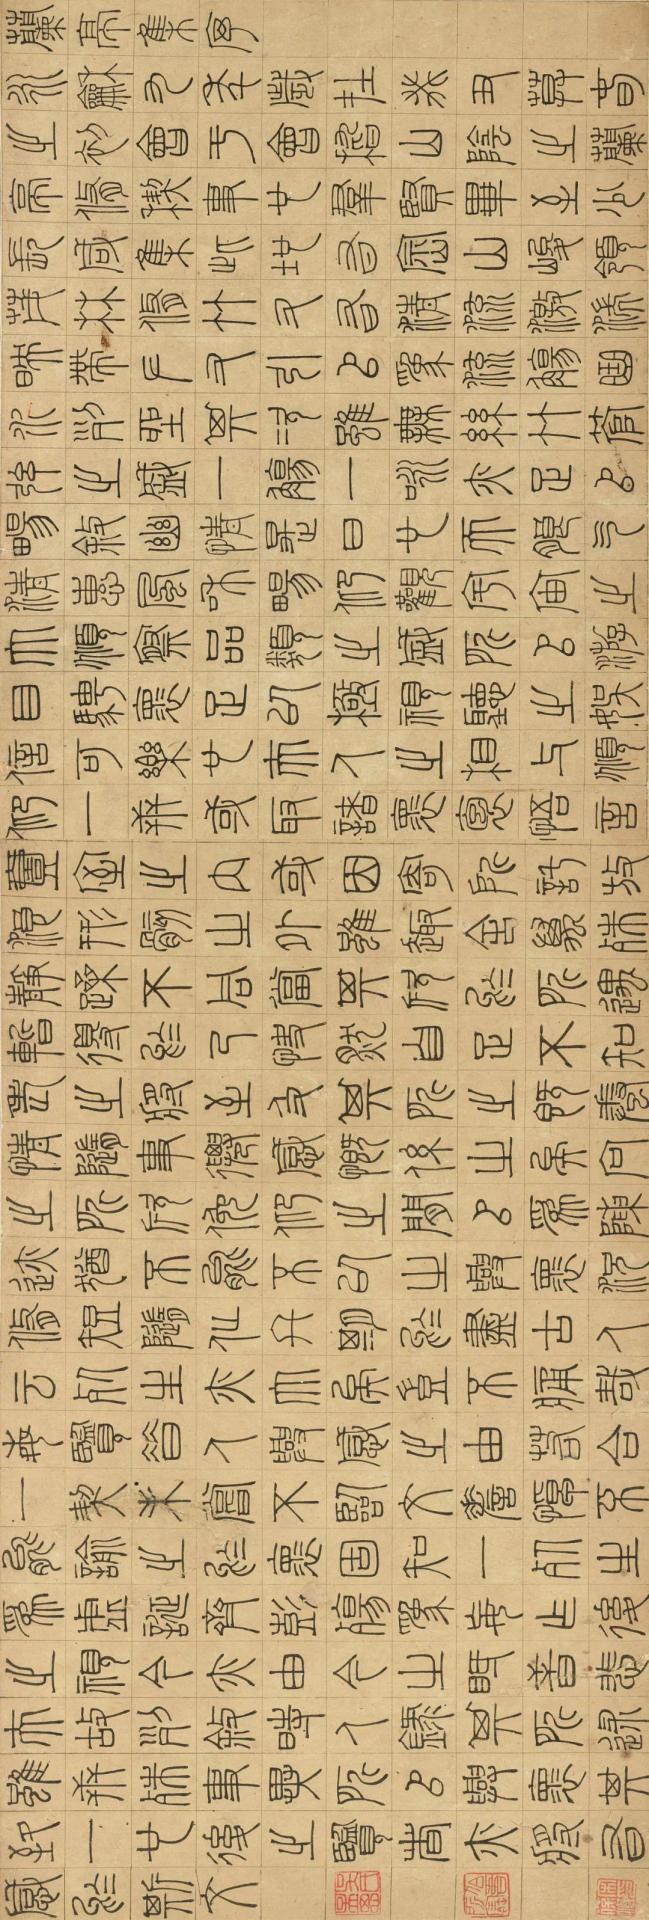 蘭亭集序
永和九年歲在癸丑暮春
之初會于會稽山陰之蘭
亭修禊事也羣賢畢至少
長咸集此地有崇山峻領
茂林修竹又有清流激湍
映帶左右引以爲流觴曲
水列坐其次雖無絲竹管
弦之盛一觴一詠亦足以
暢敘幽情是日也天朗氣
清惠風和暢仰觀宇宙之
大俯察品類之盛所以遊
目騁懷足以極視聽之娛
信可樂也夫人之相與俯
仰一世或取諸懷抱悟言
壹室之內或因寄所託放
浪形骸之外雖趣舍萬殊
靜躁不同當其欣於所遇
暫得於己快然自足不知
老之將至及其所之既倦
情隨事遷感慨係之矣向
之所欣俛仰之閒以爲陳
迹猶不能不以之興懷況
修短隨化終期於盡古人
云死生亦大矣豈不痛哉
每覽昔人興感之由若合
一契未嘗不臨文嗟悼不
能喻之於懷固知一死生
爲虛誕齊彭殤爲妄作後
之視今亦由今之視昔悲
夫故列敘時人錄其所述
雖世殊事異所以興懷其
致一也後之覽者亦將有
感於斯文